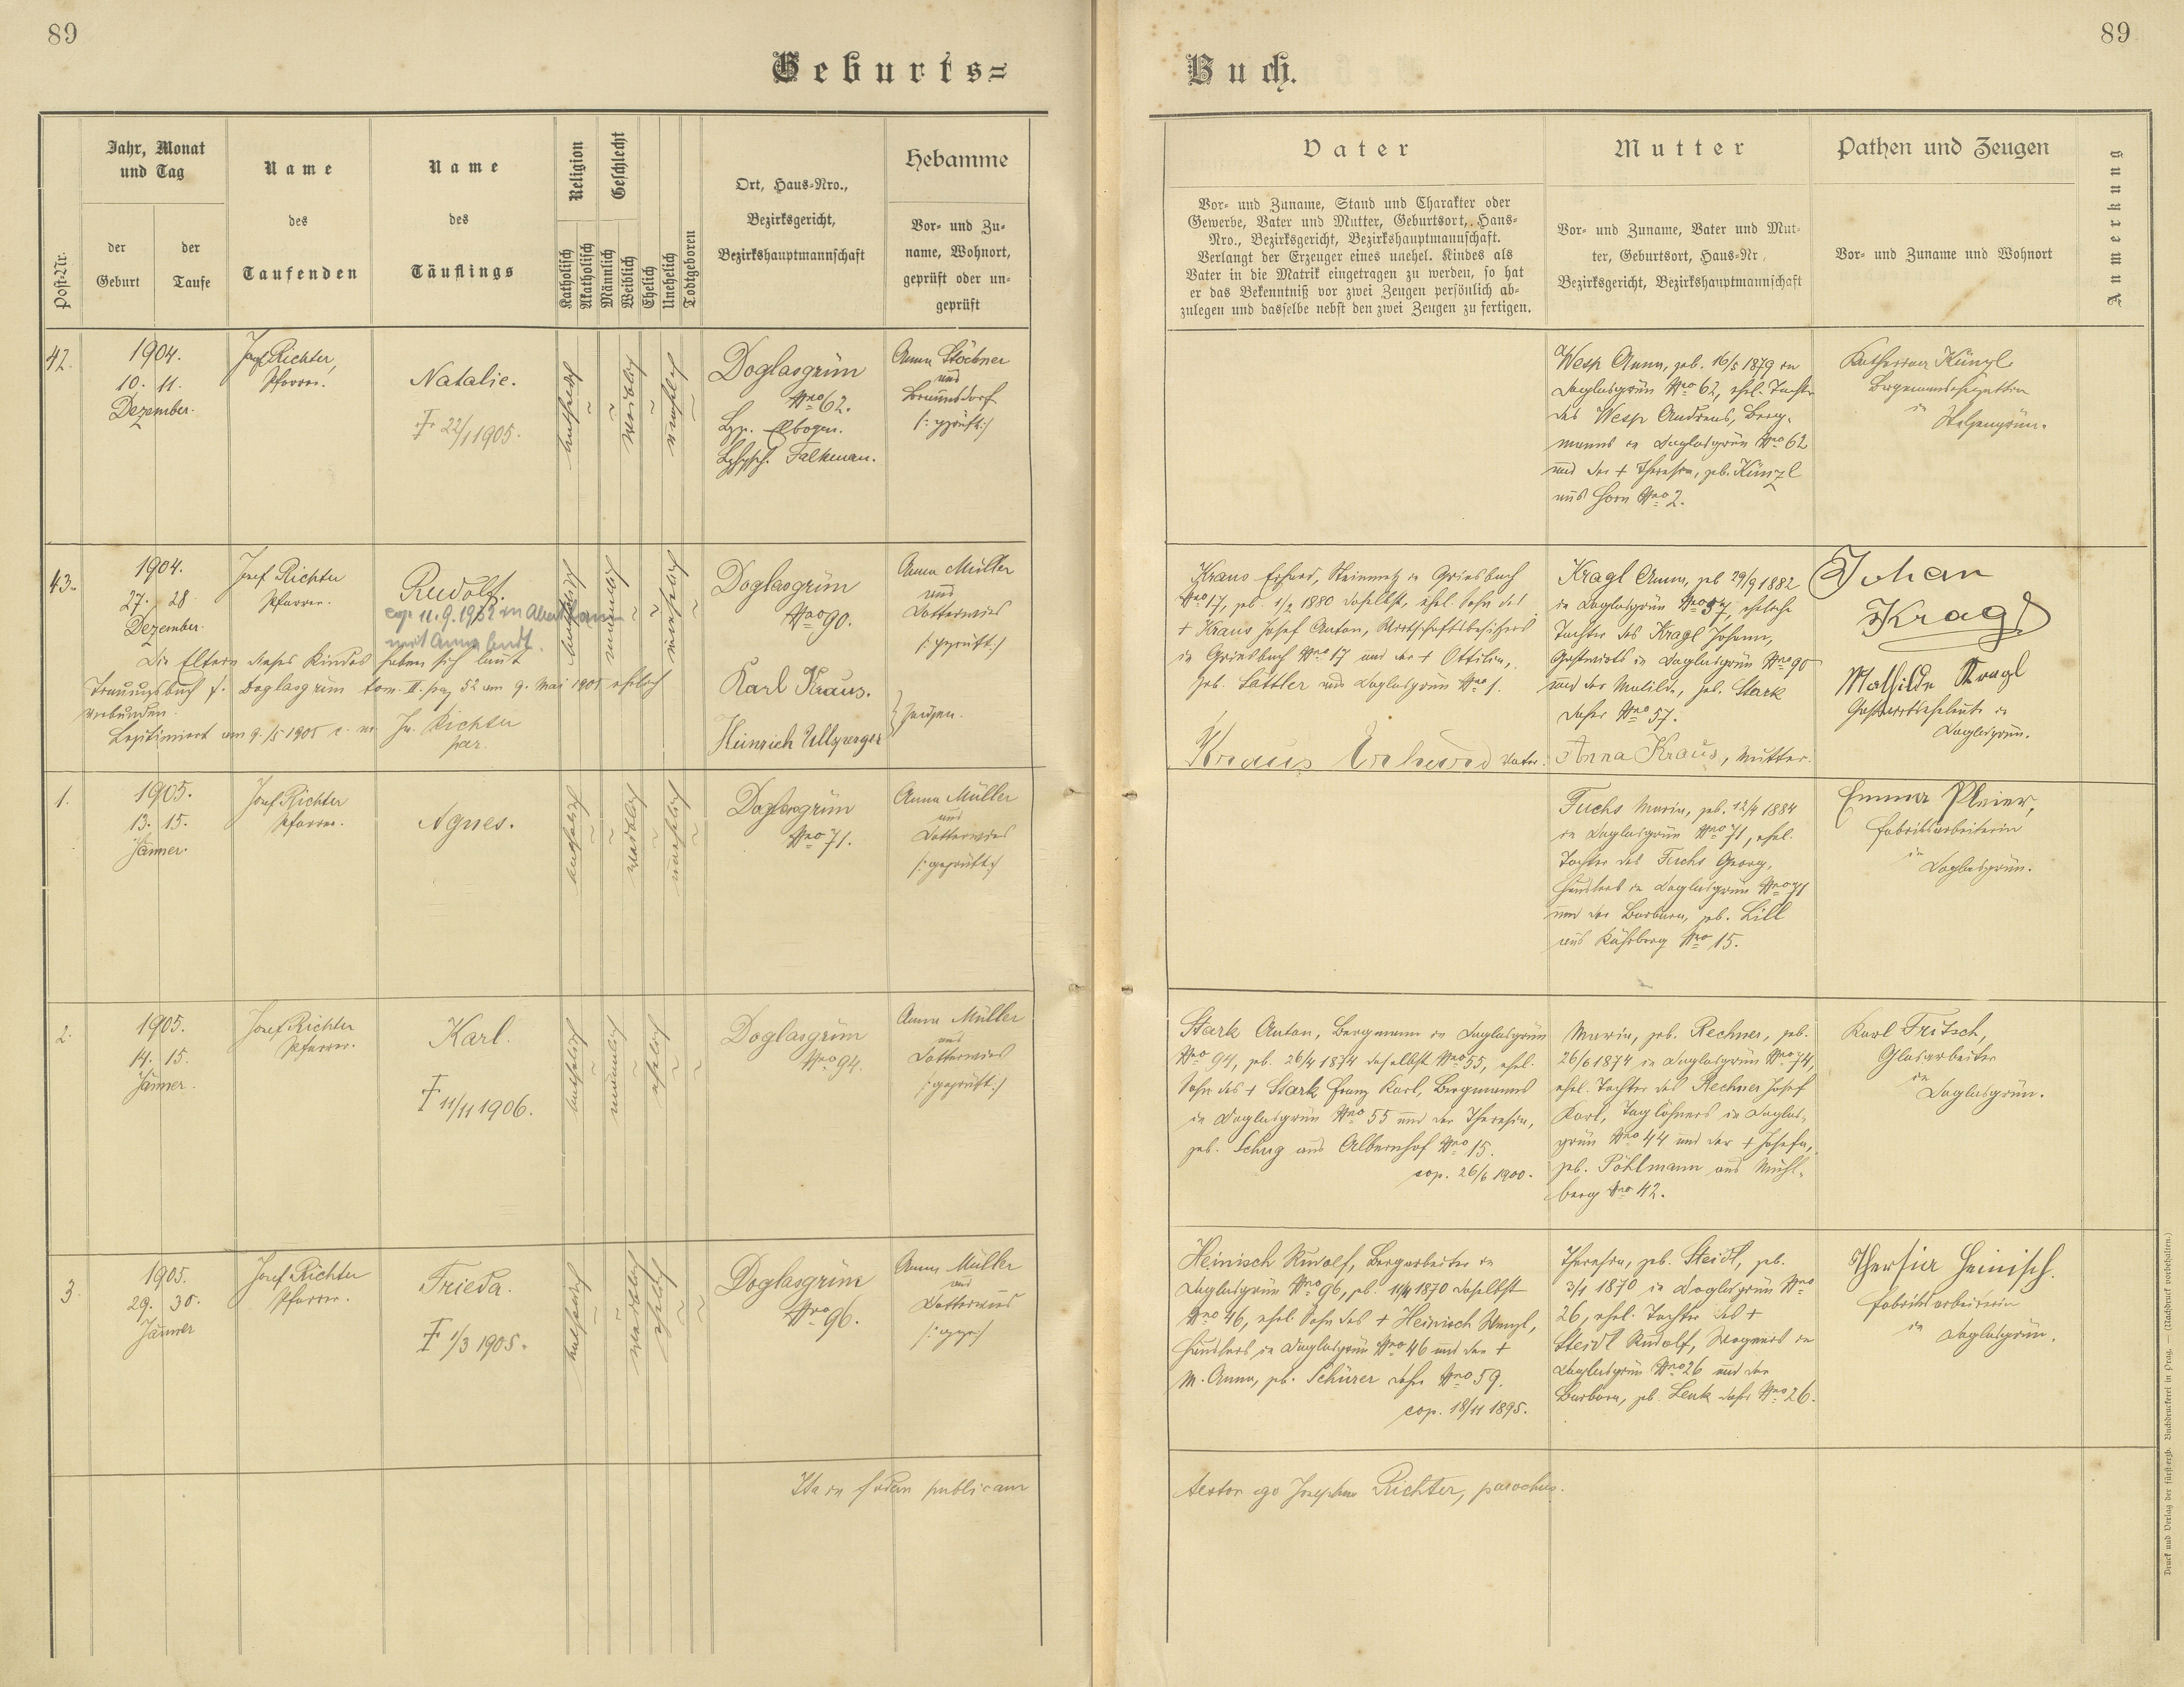 89
89
Geburts=
Buch.
Post-Nr.
Jahr, Monat
und Tag
der
Geburt
der
Taufe
Name
des
Taufenden
Name
des
Täuflings
Religion
Katholisch
Akatholisch
Geschlecht
Männlich
Weiblich
Ehelich
Unehelich
Todtgeboren
Ort, Haus-Nro.,
Bezirksgericht,
Bezirkshauptmannschaft
Hebamme
Vor- und Zu-
name, Wohnort,
geprüft oder un-
geprüft
Vater
Vor- und Zuname, Stand und Charakter oder
Gewerbe, Vater und Mutter, Geburtsort, Haus-
Nro., Bezirksgericht, Bezirkshauptmannschaft.
Verlangt der Erzeuger eines unehel. Kindes als
Vater in die Matrik eingetragen zu werden, so hat
er das Bekenntniß vor zwei Zeugen persönlich ab-
zulegen und dasselbe nebst den zwei Zeugen zu fertigen.
Mutter
Vor- und Zuname, Vater und Mut-
ter, Geburtsort, Haus-Nr.,
Bezirksgericht, Bezirkshauptmannschaft
Pathen und Zeugen
Vor- und Zuname und Wohnort
Anmerkung
42.
1904.
10. 11.
Dezember.
Josef Richter,
Pfarrer.
Natalie.
† 22/1 1905.
katholisch
weiblich
unehelich
Doglasgrün
Nro 62.
Bzg. Elbogen.
Falkenau.
Anna Stöckner
aus
Braunsdorf
(: geprüft :)
Wesp Anna, geb. 16/5 1879 in
Doglasgrün Nro 62, ehel. Tochter
des Wesp Andreas, Berg-
manns in Doglasgrün Nro 62
und der † Theresia, geb. Künzl
aus Horn Nro 2.
Katharina Künzl
Bergmannsgattin
in
43.
1904.
27. 28.
Dezember.
Josef Richter
Pfarrer.
Rudolf.
cop. 11.9.1932 in
mit Anna
katholisch
männlich
unehelich
Doglasgrün
Nro 90.
Anna Müller
aus
Lotterwies
(: geprüft :)
Die Eltern dieses Kindes haben sich laut
Trauungsbuch f. Doglasgrün tom. II. pag 52 am 9. Mai 1905 ehelich
verbunden.
Legitimiert am 9./5 1905 Jos. Richter
par.
Karl Kraus.
Heinrich
Zeugen.
Kraus Erhard, Steinmetz in Griesbach
Nro 17, geb. 1/2 1880 daselbst, ehel. Sohn des
† Kraus Josef Anton, Wirtschaftsbesitzers
in Griesbach Nro 17 und der † Ottilia,
geb. Sattler aus Doglasgrün Nro 1.
Kraus Erhard Vater.
Kragl Anna, geb. 29/9 1882
in Doglasgrün Nro 57, eheliche
Tochter des Kragl Johann,
Gastwirts in Doglasgrün Nro 90
und der Matilde, geb. Stark
daher Nro 57.
Anna Kraus, Mutter.
Johan
Kragl
Mathilde Kragl
Gastwirtseheleute in
Doglasgrün.
1.
1905.
13. 15.
Jänner.
Josef Richter
Pfarrer.
Agnes.
katholisch
weiblich
unehelich
Doglasgrün
Nro 71.
Anna Müller
aus
Lotterwies
(: geprüft :)
Fuchs Maria, geb. 12/4 1884
in Doglasgrün Nro 71, ehel.
Tochter des Fuchs Georg,
Häuslers in Doglasgrün Nro 71
und der Barbara, geb. Lill
aus Kühberg Nro 15.
Emma Pleier,
Fabriksarbeiterin
in
Doglasgrün.
2.
1905.
14. 15.
Jänner.
Josef Richter
Pfarrer.
Karl.
† 11/11 1906.
katholisch
männlich
ehelich
Doglasgrün
Nro 94.
Anna Müller
aus
Lotterwies
(: geprüft :)
Stark Anton, Bergmann in Doglasgrün
Nro 94, geb. 26/4 1874 daselbst Nro 55, ehel.
Sohn des † Stark Franz Karl, Bergmanns
in Doglasgrün Nro 55 und der Theresia,
geb. Schug aus Albernhof Nro 15.
cop. 26/6 1900.
Maria, geb. Rechner, geb.
26/6 1874 in Doglasgrün Nro 74,
ehel. Tochter des Rechner Josef
Karl, Taglöhners in Doglas-
grün Nro 44 und der † Josefa,
geb. Pöhlmann aus Mühl-
berg Nro 42.
Karl Fritsch,
Glasarbeiter
in
Doglasgrün.
3.
1905.
29. 30.
Jänner
Josef Richter
Pfarrer.
Frieda.
† 1/3 1905.
katholisch
weiblich
ehelich
Doglasgrün
Nro 96.
Anna Müller
aus
Lotterwies
Heinisch Rudolf, Bergarbeiter in
Doglasgrün Nro 96, geb. 11/4 1870 daselbst
Nro 46, ehel. Sohn des † Heinisch Wenzl,
Häuslers in Doglasgrün Nro 46 und der †
M. Anna, geb. Schürer daher Nro 59.
cop. 18/11 1895.
Theresia, geb. Steidl, geb.
3/1 1870 in Doglasgrün Nro
26, ehel. Tochter des †
Steidl Rudolf, Wagners in
Doglasgrün Nro 26 und der
Barbara, geb. Lenk daher Nro 26.
Thersia Heinisch.
Fabriksarbeiterin
in
Doglasgrün.
Ita in fidem publicam
testor ego Josephus Richter, parochus.
Druck und Verlag der fürsterzb. Buchdruckerei in Prag. — (Nachdruck vorbehalten.)